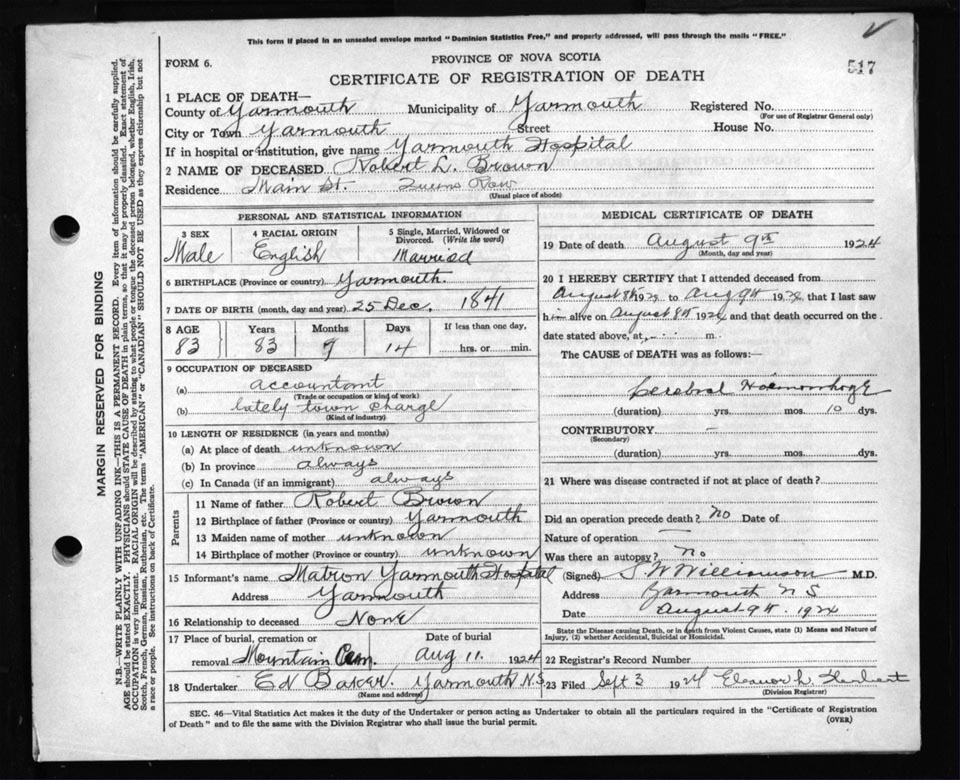 This form if placed in an unsealed envelope marked "Dominion Statistics Free," and properly addressed, will pass through the mails "FREE."
FORM 6.
PROVINCE OF NOVA SCOTIA
517
CERTIFICATE OF REGISTRATION OF DEATH
1 PLACE OF DEATH—
County of Yarmouth Municipality of Yarmouth Registered No.
(For use of Registrar General only)
City or Town Yarmouth Street House No.
If in hospital or institution, give name Yarmouth Hospital
2 NAME OF DECEASED Robert L. Brown
Residence Main St. Row
(Usual place of abode)
PERSONAL AND STATISTICAL INFORMATION
3 SEX 4 RACIAL ORIGIN 5 Single, Married, Widowed or Divorced. (Write the word)
Male English Married
6 BIRTHPLACE (Province or country) Yarmouth.
7 DATE OF BIRTH (month, day and year) 25 Dec. 1841
8 AGE Years Months Days If less than one day,
83 83 7 14 hrs. or min.
9 OCCUPATION OF DECEASED
(a) accountant
(Trade or occupation or kind of work)
(b) lately town charge
(Kind of industry)
10 LENGTH OF RESIDENCE (in years and months)
(a) At place of death unknown
(b) In province always
(c) In Canada (if an immigrant) always
Parents
11 Name of father Robert Brown
12 Birthplace of father (Province or country) Yarmouth
13 Maiden name of mother unknown
14 Birthplace of mother (Province or country) unknown
15 Informant's name Matron Yarmouth Hospital
Address Yarmouth
16 Relationship to deceased None
17 Place of burial, cremation or removal Mountain Cem. Date of burial Aug 11. 1924
18 Undertaker E N Baker. Yarmouth N.S.
(Name and address)
MEDICAL CERTIFICATE OF DEATH
19 Date of death August 9th 1924
(Month, day and year)
20 I HEREBY CERTIFY that I attended deceased from
August 8th 1924 to Aug 9th 1924, that I last saw
him alive on August 8th 1924 and that death occurred on the
date stated above, at, m.
The CAUSE of DEATH was as follows:
Cerebral Haemorrhage
(duration) yrs. mos. 10 dys.
CONTRIBUTORY —
(Secondary)
(duration) yrs. mos. dys.
21 Where was disease contracted if not at place of death?
Did an operation precede death? No Date of
Nature of operation —
Was there an autopsy? No
(Signed) S W Williamson M.D.
Address Yarmouth N S
Date August 9th. 1924
State the Disease causing Death, or in death from Violent Causes, state (1) Means and Nature of
Injury, (2) whether Accidental, Suicidal or Homicidal.
22 Registrar's Record Number
23 Filed Sept 3 1924 Eleanor L. Herbert
(Division Registrar)
SEC. 46—Vital Statistics Act makes it the duty of the Undertaker or person acting as Undertaker to obtain all the particulars required in the "Certificate of Registration
of Death" and to file the same with the Division Registrar who shall issue the burial permit.
(OVER)
MARGIN RESERVED FOR BINDING
N.B.—WRITE PLAINLY WITH UNFADING INK—THIS IS A PERMANENT RECORD. Every item of information should be carefully supplied.
AGE should be stated EXACTLY. PHYSICIANS should STATE CAUSE OF DEATH in plain terms, so that it may be properly classified. Exact statement of
OCCUPATION is very important. RACIAL ORIGIN will be described by stating to what people or tongue the deceased person belonged, whether English, Irish,
Scotch, French, German, Russian, Ruthenian, etc. The terms "AMERICAN" or "CANADIAN" SHOULD NOT BE USED as they express citizenship but not
a race or people. See instructions on back of Certificate.